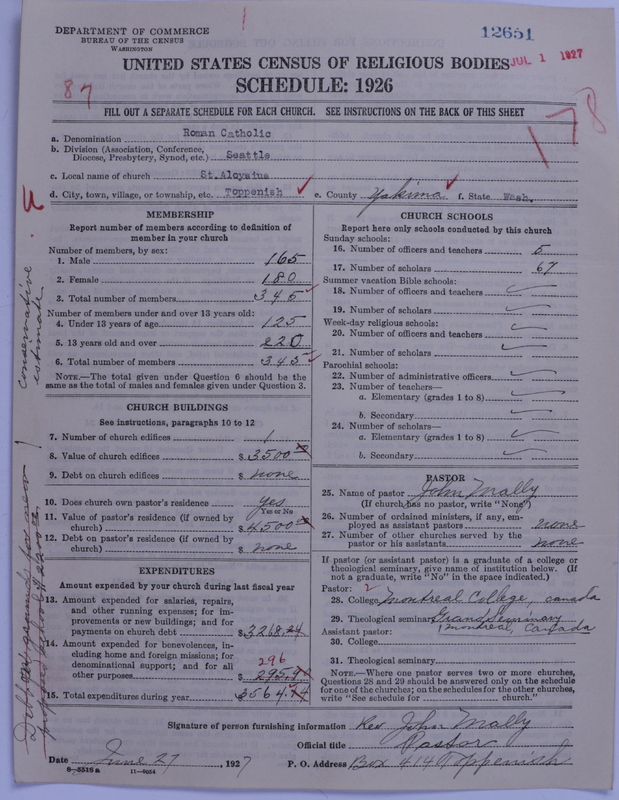 DEPARTMENT OF COMMERCE
BUREAU OF THE CENSUS
WASHINGTON
12651
JUL 1 1927
UNITED STATES CENSUS OF RELIGIOUS BODIES
SCHEDULE: 1926
87
178
FILL OUT A SEPARATE SCHEDULE FOR EACH CHURCH. SEE INSTRUCTIONS ON THE BACK OF THIS SHEET
a. Denomination Roman Catholic
b. Division (Association, Conference, Diocese, Presbytery, Synod, etc.) Seattle
c. Local name of church St.Aloysius
d. City, town, village, or township, etc. Toppenish e. County Yakima f. State Wash.
MEMBERSHIP
Report number of members according to definition of
member in your church
Number of members, by sex:
1. Male 165
2. Female 180
3. Total number of members 345
Number of members under and over 13 years old:
4. Under 13 years of age 125
5. 13 years old and over 220
6. Total number of members 345
NOTE.—The total given under Question 6 should be the
same as the total of males and females given under Question 3.
conservative
estimate
CHURCH BUILDINGS
See instructions, paragraphs 10 to 12
7. Number of church edifices 1
8. Value of church edifices $ 3500
9. Debt on church edifices $ none
10. Does church own pastor's residence yes
Yes or No
11. Value of pastor's residence (if owned by
church) $ 4500
12. Debt on pastor's residence (if owned by
church) $ none
EXPENDITURES
Amount expended by your church during last fiscal year
13. Amount expended for salaries, repairs,
and other running expenses; for im-
provements or new buildings; and for
payments on church debt $ 3268.24
14. Amount expended for benevolences, in-
cluding home and foreign missions; for
denominational support; and for all
other purposes 296
15. Total expenditures during year $ 3564.
CHURCH SCHOOLS
Report here only schools conducted by this church
Sunday schools:
16. Number of officers and teachers 5
17. Number of scholars 67
Summer vacation Bible schools:
18. Number of officers and teachers
19. Number of scholars
Week-day religious schools:
20. Number of officers and teachers
21. Number of scholars
Parochial schools:
22. Number of administrative officers
23. Number of teachers—
a. Elementary (grades 1 to 8)
b. Secondary
24. Number of scholars—
a. Elementary (grades 1 to 8)
b. Secondary
PASTOR
25. Name of pastor John Mally
(If church has no pastor, write "None")
26. Number of ordained ministers, if any, em-
ployed as assistant pastors none
27. Number of other churches served by the
pastor or his assistants none
If pastor (or assistant pastor) is a graduate of a college or
theological seminary, give name of institution below. (If
not a graduate, write "No" in the space indicated.)
Pastor: 2
28. College Montreal College, canada
29. Theological seminary Grand Seminary
Montreal, Canada
Assistant pastor:
30. College
31. Theological seminary
NOTE.—Where one pastor serves two or more churches,
Questions 28 and 29 should be answered only on the schedule
for one of the churches; on the schedules for the other churches,
write "See schedule for church."
Signature of person furnishing information Rev John Mally
Official title Pastor
Date June 27, 1927 P. O. Address Box 414 Toppenish
8—5518 a 11—9054